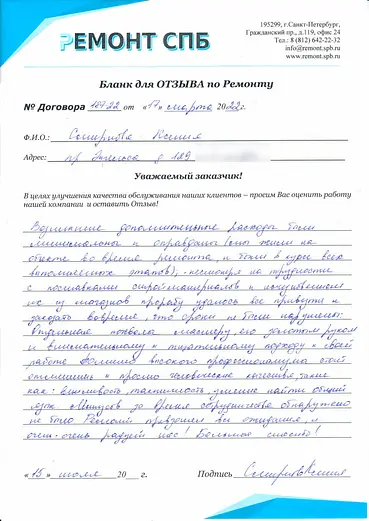 РЕМОНТ СПБ
195299, г.Санкт-Петербург,
Гражданский пр., д.119, офис 24
Тел.: 8 (812) 642-22-32
info@remont.spb.ru
remont.spb.ru
Бланк для ОТЗЫВА по Ремонту
№ Договора 18722 от «17» марта 2022г.
Ф.И.О.: Смирнова Ксения
Адрес: пр Энгельса д 129
Уважаемый заказчик!
В целях улучшения качества обслуживания наших клиентов – просим Вас оценить работу
нашей компании и оставить Отзыв!
дополнительные расходы были
минимальны и оправданы мы жили на
объекте во время ремонта, и были в курсе всех
выполняемых этапов), несмотря на трудности
с поставками стройматериалов и исчезновения
их из магазинов прорабу удалось все привезти и
вовремя, что сроки не были нарушены.
похвала мастеру, его золотым рукам
и внимательному и тщательному подходу к своей
работе высокого профессионализма стоит
отметить и просто человеческие качества, такие
как: вежливость, тактичность, умение найти общий
язык Минусов за время сотрудничества обнаружено
не было Ремонт превзошел все ожидания, и
очень-очень радует нас! Большое спасибо!
«15» июля 20 г.
Подпись Смирнова Ксения